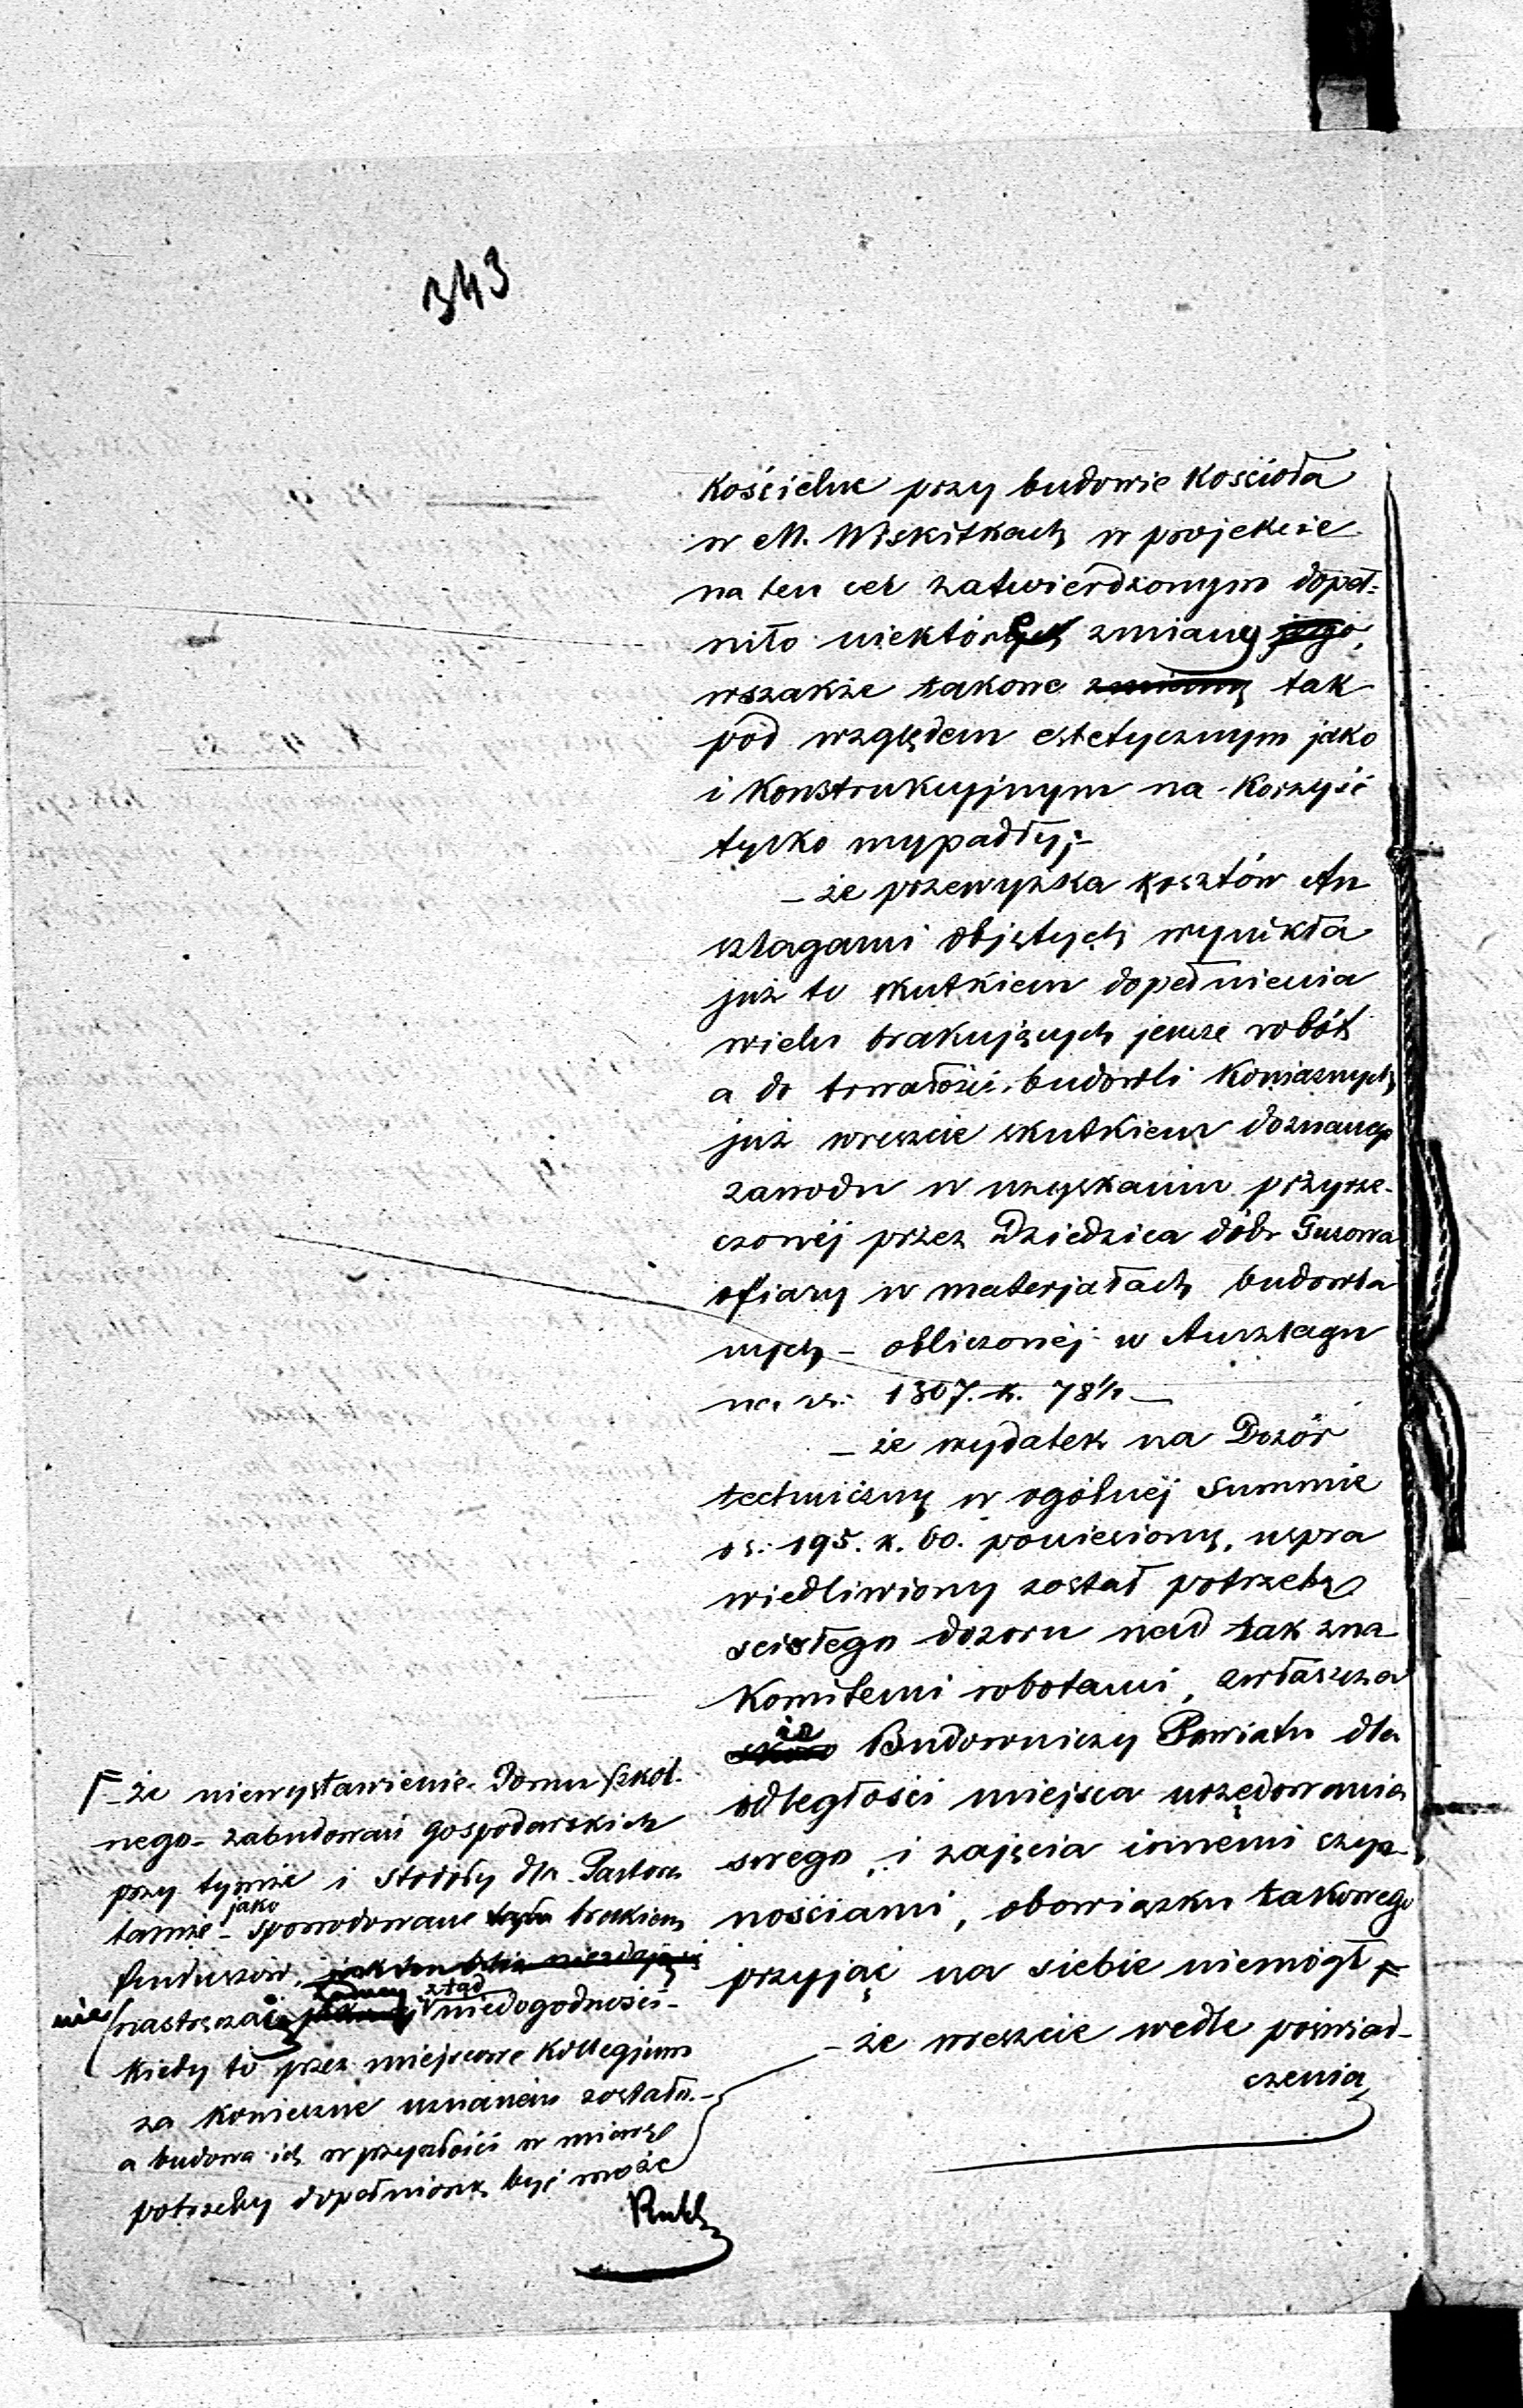 343
Kościelne przy budowie Kościoła
w M. Wiskitkach w projekcie
na ten cel zatwierdzonym dopeł-
niło niektóre zmiany jego,
wszakże takowe zmiany tak
pod względem estetycznym jako
i Konstrukcyjnym na korzyść
tylko wypadły;-
– że przewyżka kosztów An
szlagami objętych wynikła
już to skutkiem dopełnienia
wielu brakujących jeszcze robót
a do trwałości budowli Koniecznych
już wreszcie skutkiem doznanego
zawodu w uzyskaniu przyrze-
czonéj przez Dziedzica dóbr Guzowa
ofiary w materjałach budowla
nych – obliczonéj w Anszlagu
na rs: 1307. k. 78½ –
– że wydatek na Dozór
techniczny w ogólnéj Summie
rs: 195. k. 60. poniesiony, uspra
wiedliwiony został potrzebą
scisłego dozoru nad tak zna
Komitemi robotami, zwłaszcza
że Budowniczy Powiatu dla
odległości miejsca urzędowania
swego, i zajęcia innemi czyn-
nościami, obowiązku takowego
przyjąć na siebie niemógł
– że wreszcie wedle poświad-
czenia
– że niewystawienie Domu szkol-
nego – zabudowań gospodarskich
przy tymże i Stodoły dla Pastora
tamże – jako spowodowane brakiem
funduszów,
nie nastręcza żadnej ztąd niedogodności –
Kiedy to przez miejscowe Kollegium
za Konieczne uznaném zostało –
a budowa ich w przyszłości w miarę
potrzeby dopełnioną być może